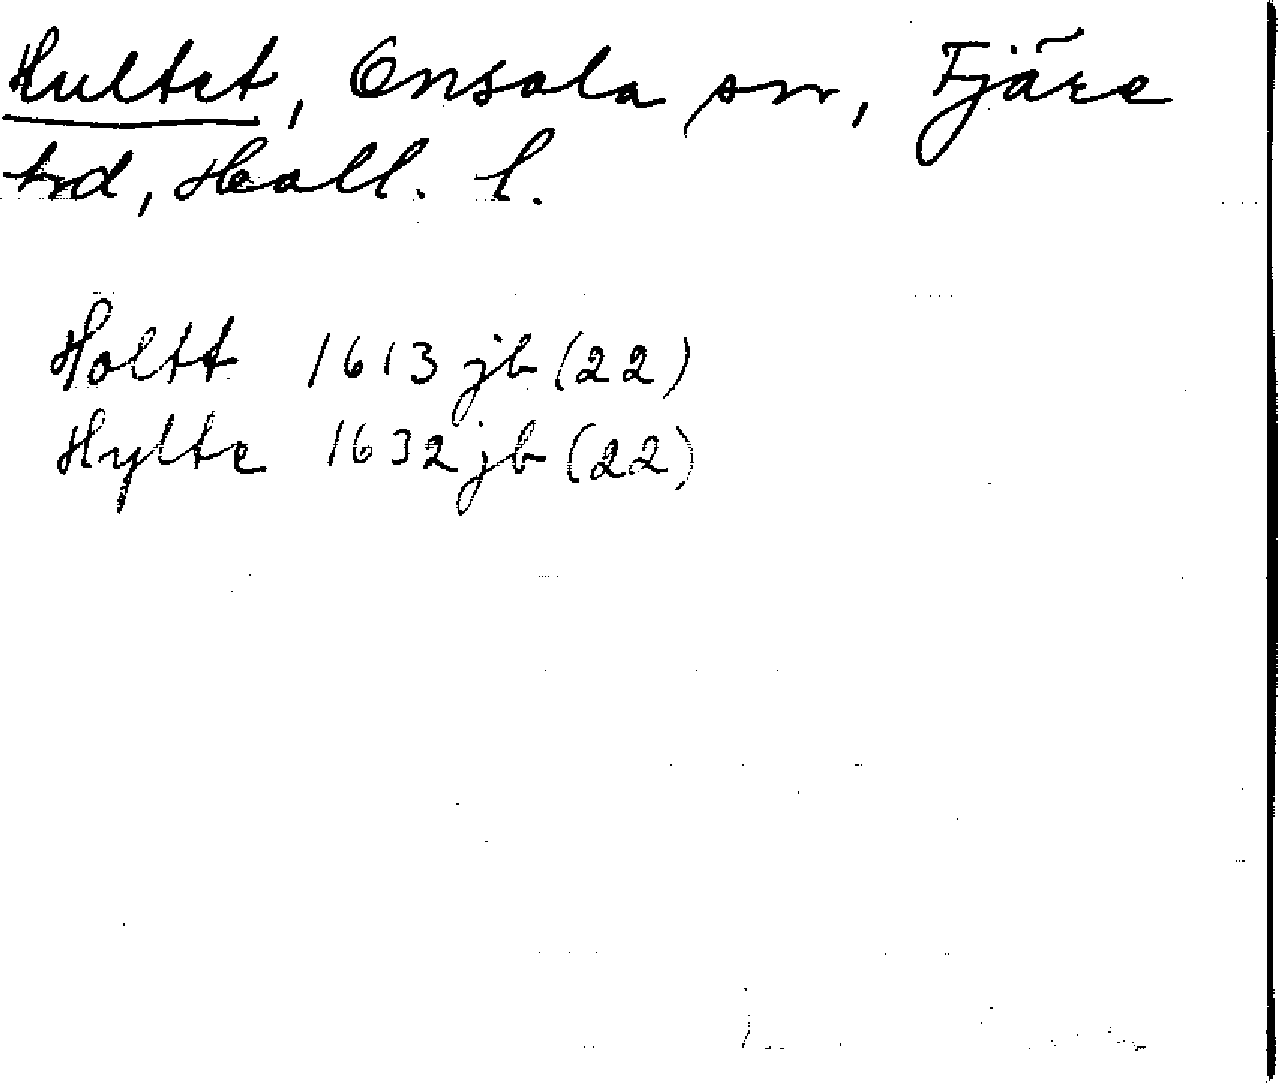 Hultet, Onsala sn, Fjäre
hd, Hall. l.
Holtt 1613 jb (22)
Hylte 1632 jb (22)